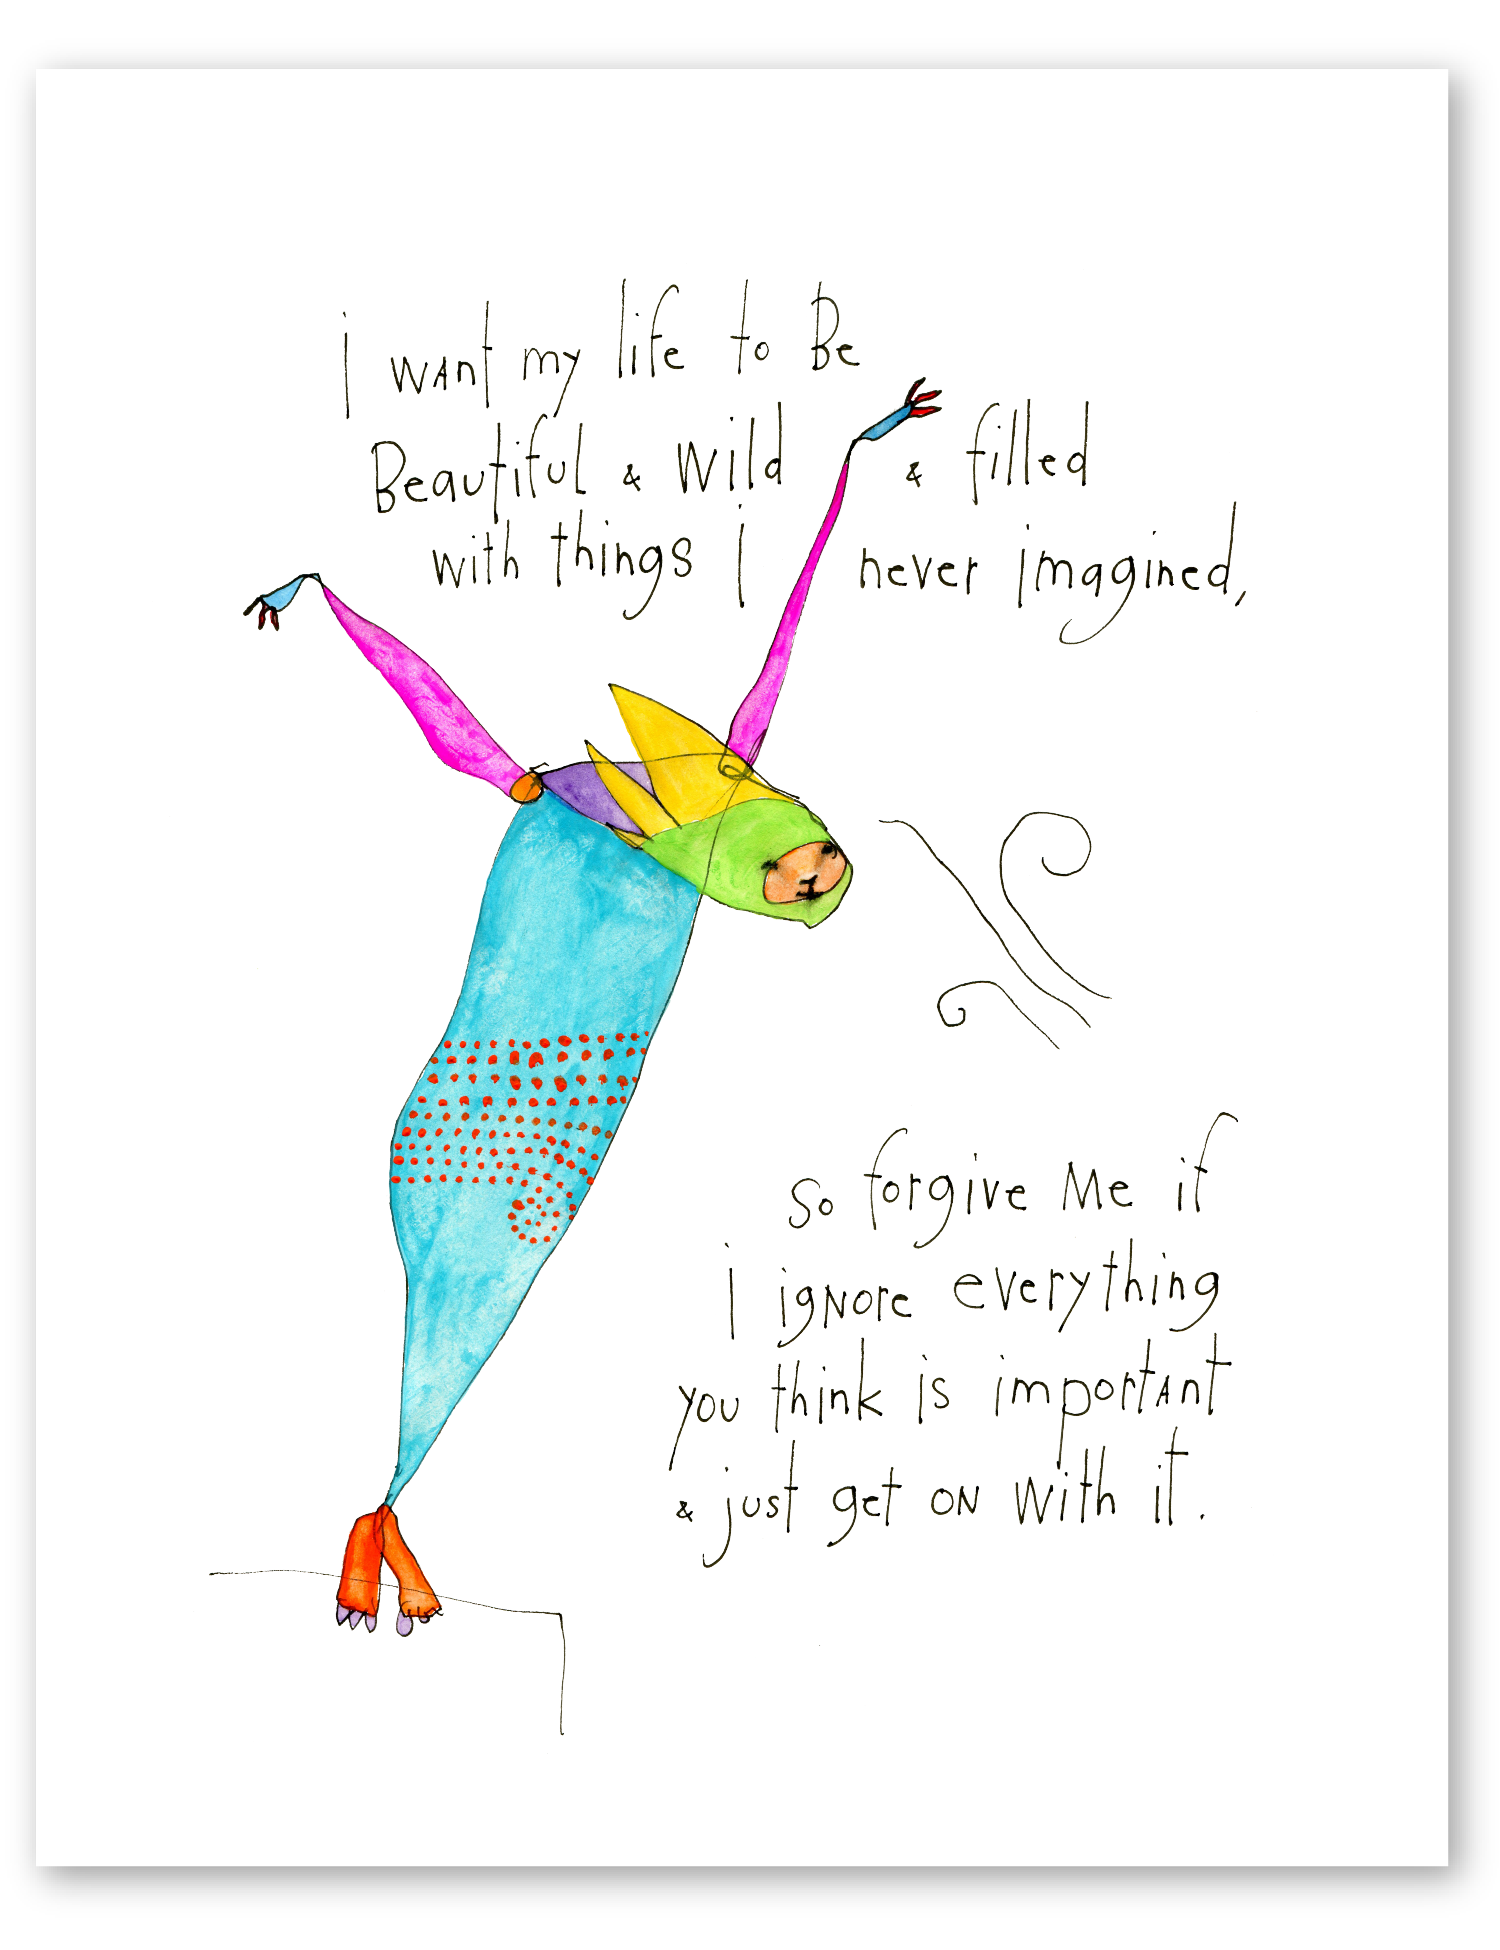 i want my life to Be
Beautiful & wild & filled
with things I never imagined,
So forgive Me if
I ignore everything
you think is important
& just get on with it.